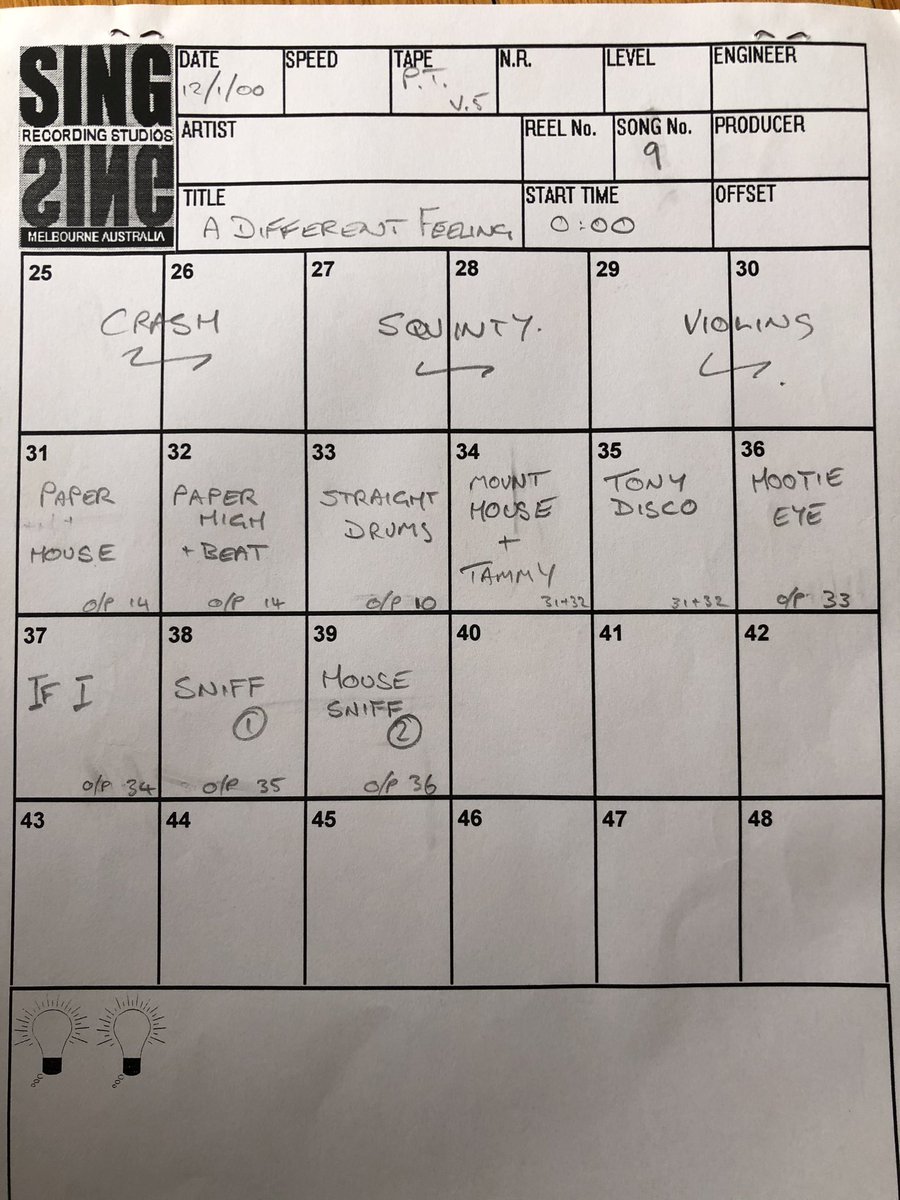 SING
RECORDING STUDIOS
SING
MELBOURNE AUSTRALIA
DATE
12/1/00
SPEED
TAPE
P.T.
V.5
N.R.
LEVEL
ENGINEER
ARTIST
REEL No.
SONG No.
9
PRODUCER
TITLE
A DIFFERENT FEELING
START TIME
0:00
OFFSET
25 26 27 28 29 30
CRASH
SQUINTY.
VIOLINS
31
PAPER
HOUSE
O/P 14
32
PAPER
HIGH
+ BEAT
O/P 14
33
STRAIGHT
DRUMS
O/P 10
34
MOUNT
HOUSE
+
TAMMY
31+32
35
TONY
DISCO
31+32
36
HOOTIE
EYE
O/P 33
37
IF I
O/P 34
38
SNIFF
1
O/P 35
39
HOUSE
SNIFF
2
O/P 36
40
41
42
43
44
45
46
47
48